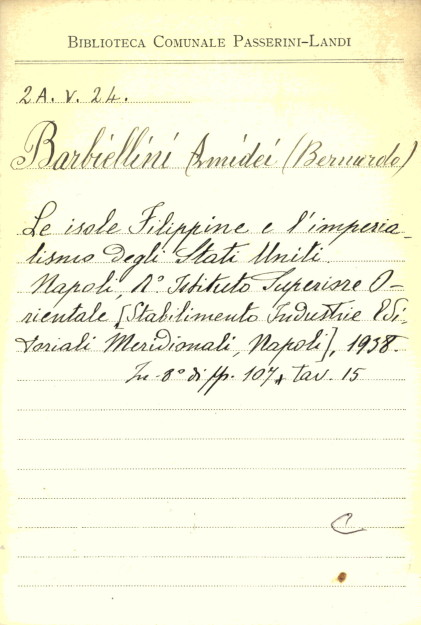 BIBLIOTECA COMUNALE PASSERINI-LANDI
2A. V. 24.
Barbiellini Amidei (Bernardo)
Le isole Filippine e l'imperia-
lismo degli Stati Uniti.
Napoli, R.° Istituto Superiore O-
rientale [Stabilimento Industrie Edi-
toriali Meridionali, Napoli], 1938.
In-8° di pp. 107, tav. 15
C